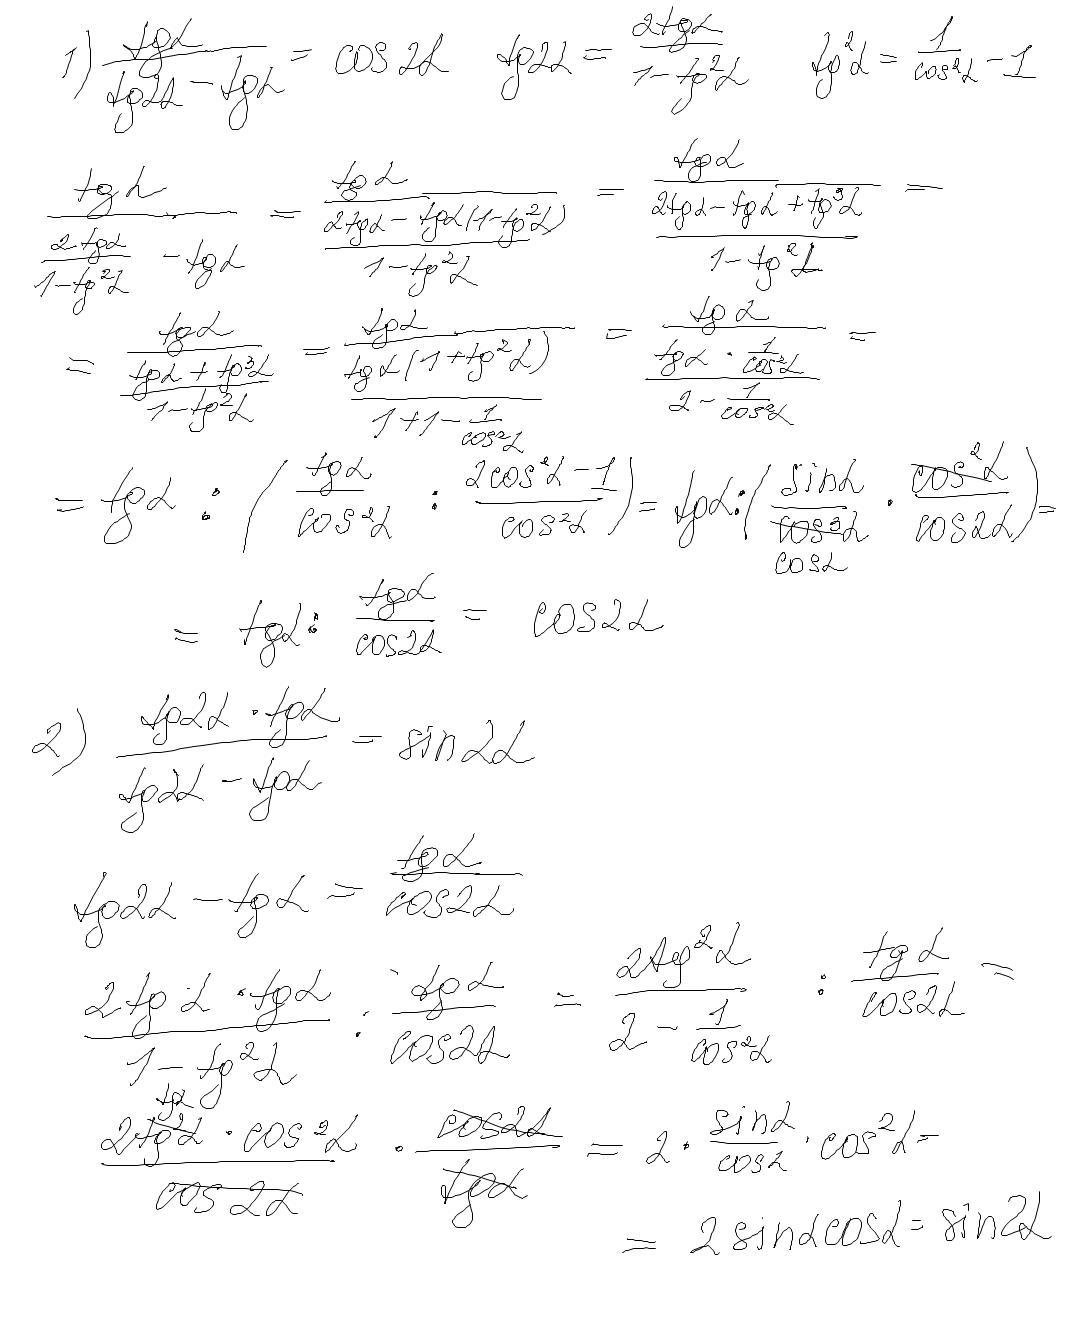 1) tgα / (tg2α - tgα) = cos2α   tg2α = 2tgα / (1 - tg²α)   tg²α = 1 / cos²α - 1
tgα / (2tgα / (1 - tg²α) - tgα) = tgα / ((2tgα - tgα(1 - tg²α)) / (1 - tg²α)) = tgα / ((2tgα - tgα + tg³α) / (1 - tg²α)) =
= tgα / ((tgα + tg³α) / (1 - tg²α)) = tgα / (tgα(1 + tg²α) / (1 + 1 - 1 / cos²α)) = tgα / ((tgα · 1 / cos²α) / (2 - 1 / cos²α)) =
= tgα : (tgα / cos²α : (2cos²α - 1) / cos²α) = tgα : (sinα / cos³α · cos²α / cos2α) =
cosα
= tgα : tgα / cos2α = cos2α
2) tg2α · tgα / (tg2α - tgα) = sin2α
tg2α - tgα = tgα / cos2α
2tgα · tgα / (1 - tg²α) : tgα / cos2α = 2tg²α / (2 - 1 / cos²α) : tgα / cos2α =
tgα
2tg²α · cos²α / cos2α · cos2α / tgα = 2 · sinα / cosα · cos²α =
= 2sinαcosα = sin2α